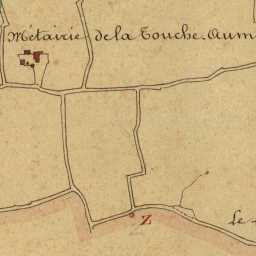 Métairie de la Touche-Aum
Z
le